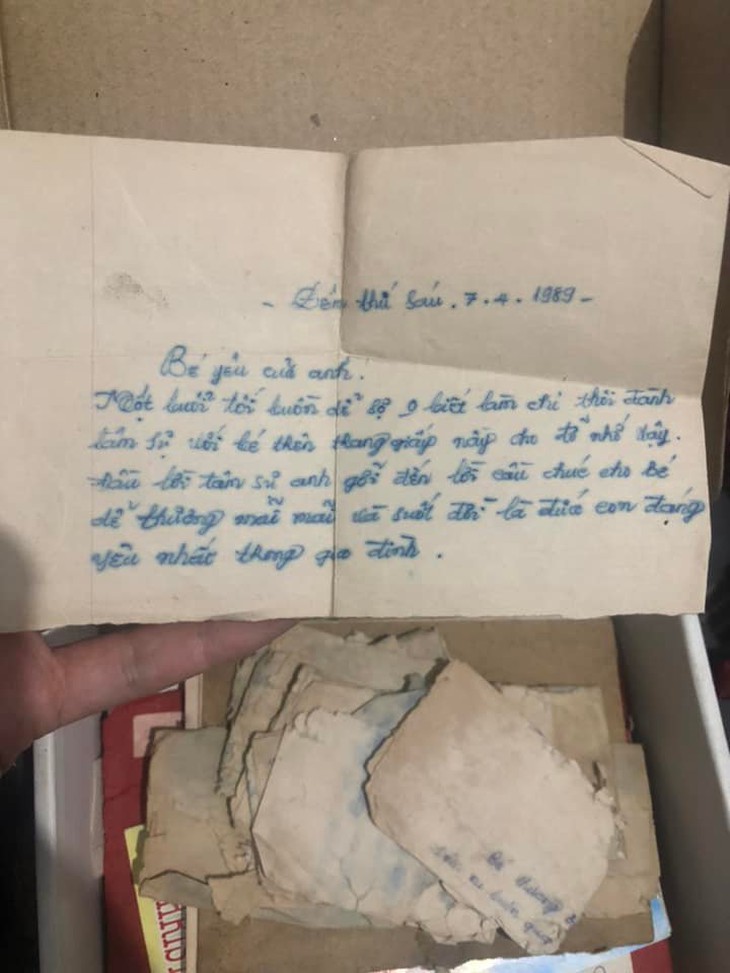 - Đêm thứ Sáu . 7 . 4 . 1989 -
Bé yêu của anh.
Một buổi tối buồn dễ sợ 0 biết làm chi thôi đành
tâm sự với bé trên trang giấy này cho đỡ nhớ vậy.
đầu lời tâm sự anh gởi đến lời cầu chúc cho bé
dễ thương mãi mãi và suốt đời là đứa con đáng
yêu nhất trong gia đình .
Bé